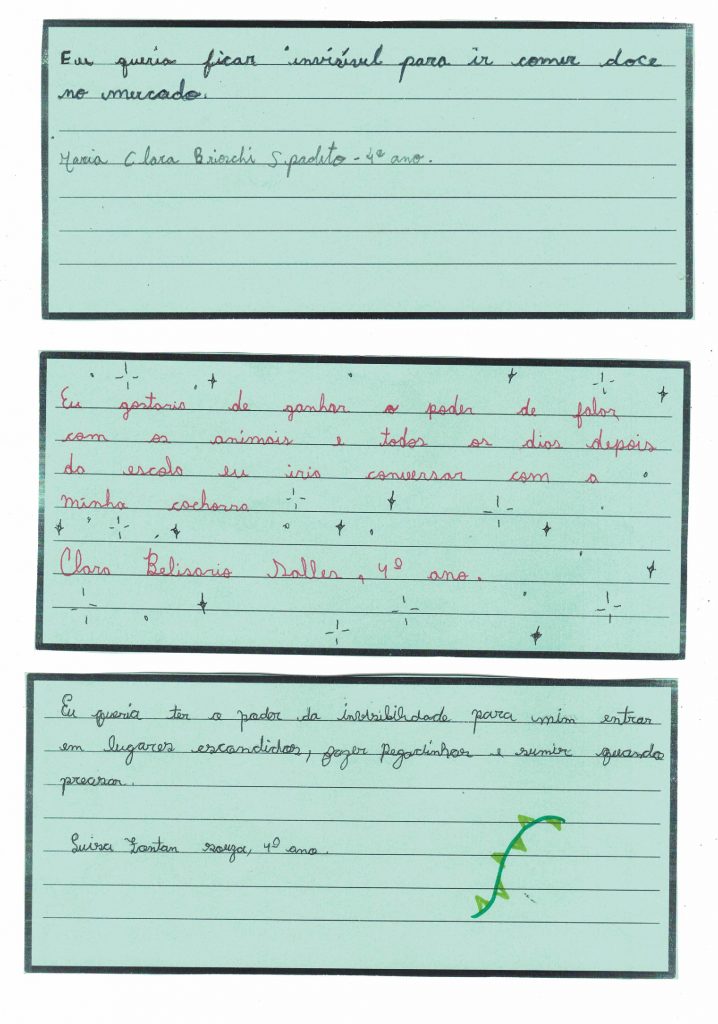 Eu queria ficar invisível para ir comer doce
no mercado.
Maria Clara Brioschi Spadeto - 4º ano.
Eu gostaria de ganhar o poder de falar
com os animais e todos os dias depois
da escola eu iria conversar com a
minha cachorra
Clara Belisario Salles, 4º ano.
Eu queria ter o poder da invisibilidade para mim entrar
em lugares escondidos, fazer pegadinhas e sumir quando
precisar.
Luisa souza, 4º ano.